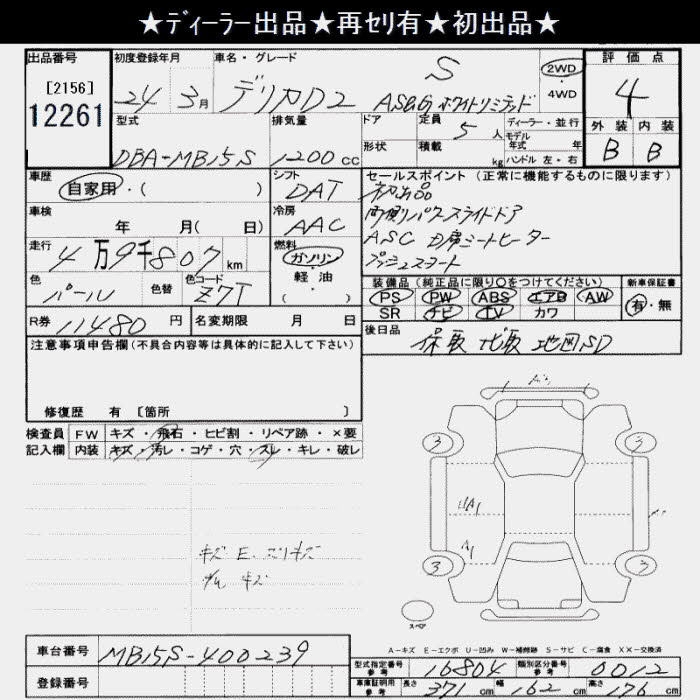 ★ディーラー出品★再セリ有★初出品★
出品番号
[2156]
12261
初度登録年月
24 3月
車名・グレード
デリカD2
S
AS&G ホワイトリミテッド
2WD
・
4WD
評価点
4
外装 内装
B B
型式
DBA-MB15S
排気量
1200cc
ドア
形状
定員 5人
積載 kg
ディーラー・並行
モデル
年式 年
ハンドル 左・右
車歴
自家用・( )
シフト
DAT
セールスポイント(正常に機能するものに限ります)
初出品
両側パワースライドドア
ASC D席シートヒーター
プッシュスタート
車検
年 月( 日)
冷房
AAC
走行
4万9千807km
燃料
ガソリン
軽・油
( )
色
パール
色替
色コード
Z7T
装備品(純正品に限り○をつけてください)
PS PW ABS エアB AW
SR ナビ TV カワ
新車保証書
有・無
R券 11480円
名変期限 月 日
後日品
保取 地図SD
注意事項申告欄(不具合内容等は具体的に記入して下さい)
修復歴 有 [箇所 ]
検査員
記入欄
FW キズ・飛石・ヒビ割・リペア跡・×要
内装 キズ・汚レ・コゲ・穴・スレ・キレ・破レ
3 3
A1
3 3
キズ E
キズ
スペア
A-キズ E-エクボ U-凹み W-補修跡 S-サビ C-腐食 XX-交換済
車台番号 MB15S-400239
登録番号
型式指定番号
参考
16804
類別区分番号
参考
0012
車庫証明用
参考
長さ 371cm 幅 162cm 高さ 176cm